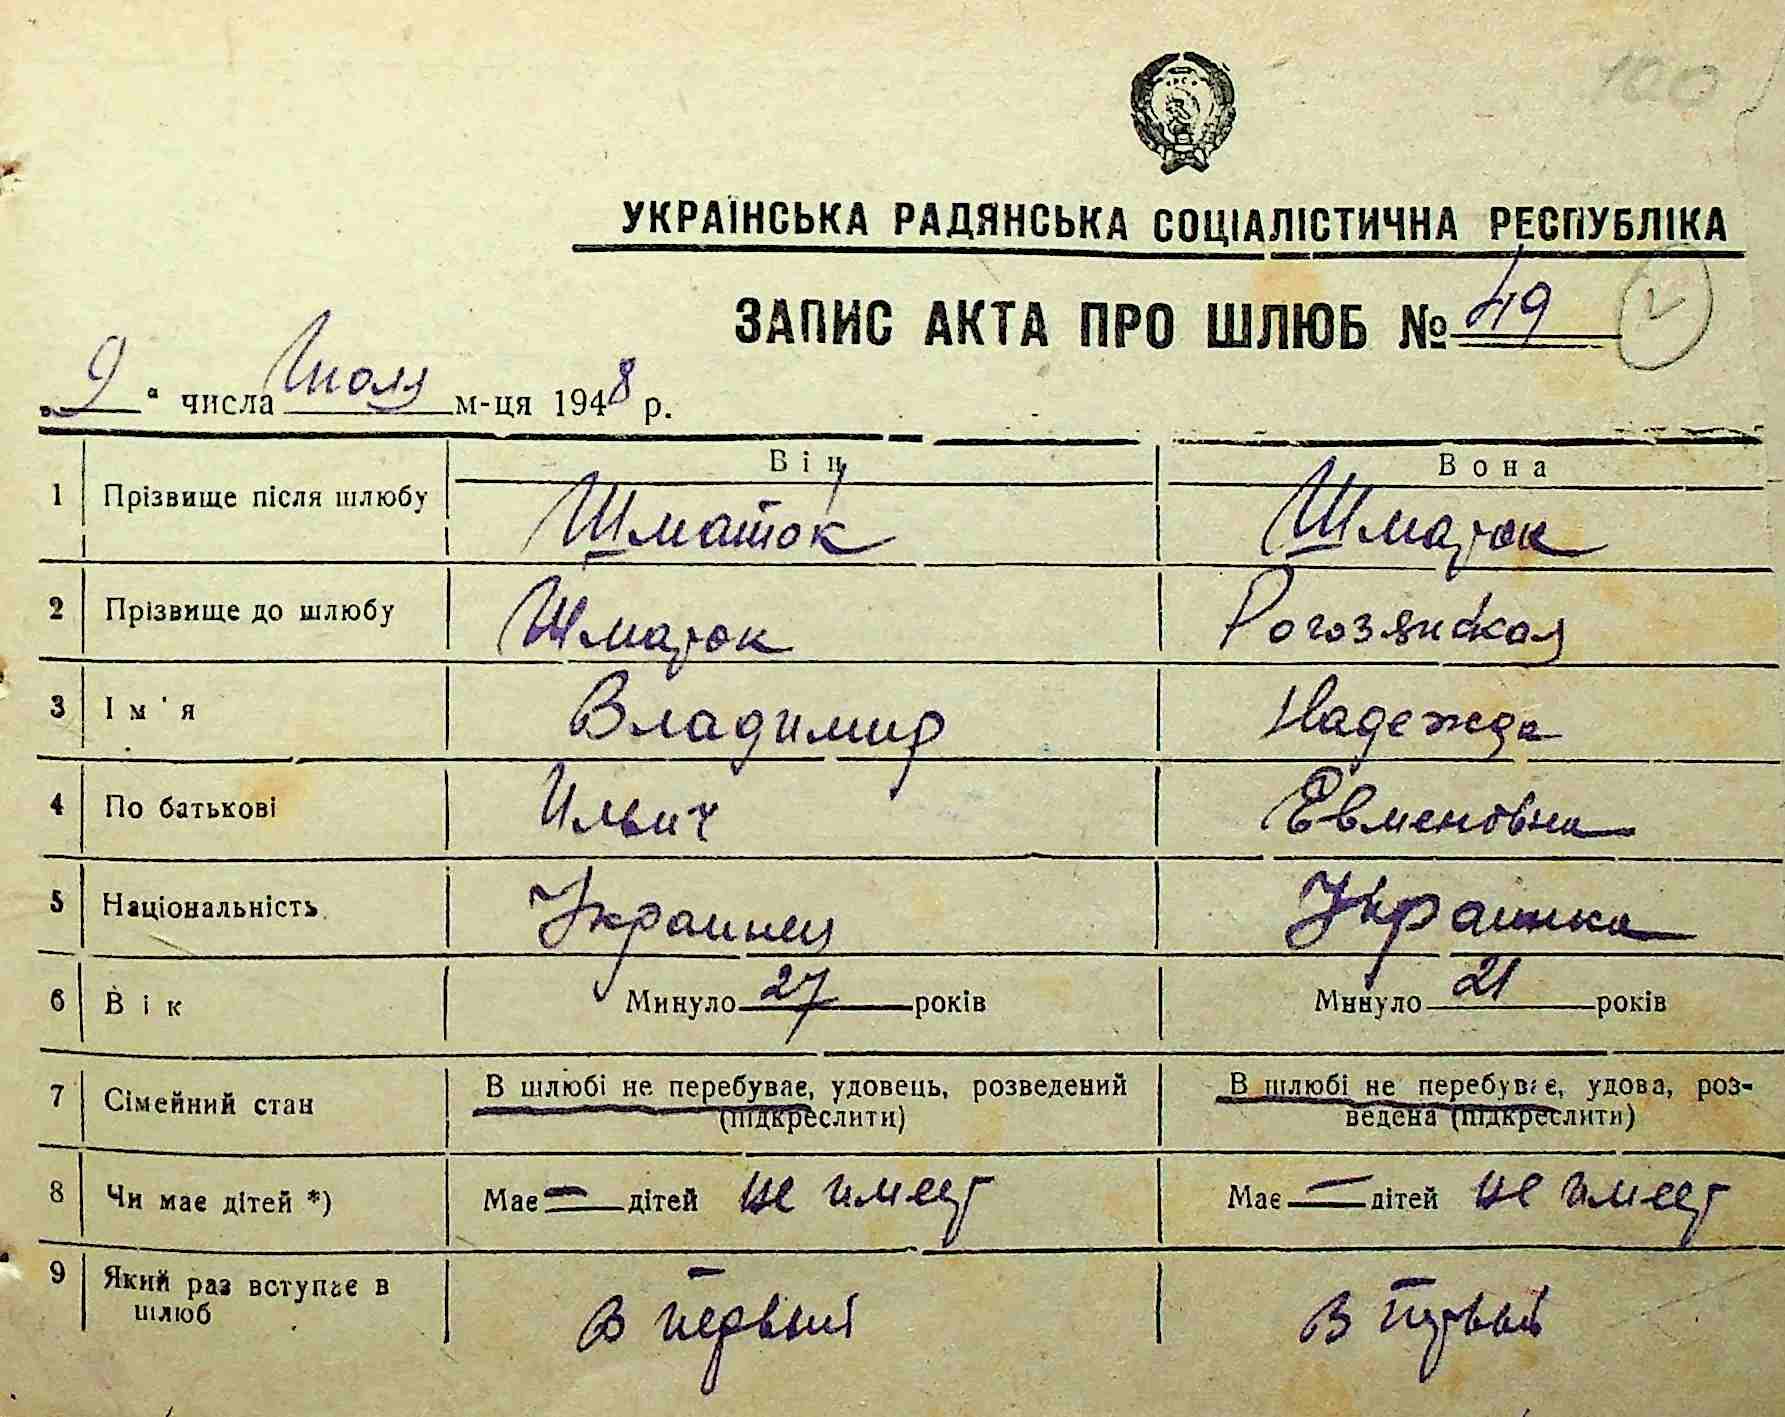 100
УКРАЇНСЬКА РАДЯНСЬКА СОЦІАЛІСТИЧНА РЕСПУБЛІКА
ЗАПИС АКТА ПРО ШЛЮБ № 49
„9“ числа Июля м-ця 1948 р.
Він Вона
1 Прізвище після шлюбу Шматок Шматок
2 Прізвище до шлюбу Шматок Рогозянская
3 Ім'я Владимир Надежда
4 По батькові Ильич Евменовна
5 Національність Украинец Украинка
6 Вік Минуло 27 років Минуло 21 років
7 Сімейний стан В шлюбі не перебуває, удовець, розведений (підкреслити) В шлюбі не перебуває, удова, роз-
ведена (підкреслити)
8 Чи має дітей *) Має — дітей не имеет Має — дітей не имеет
9 Який раз вступає в
шлюб в первый в первый